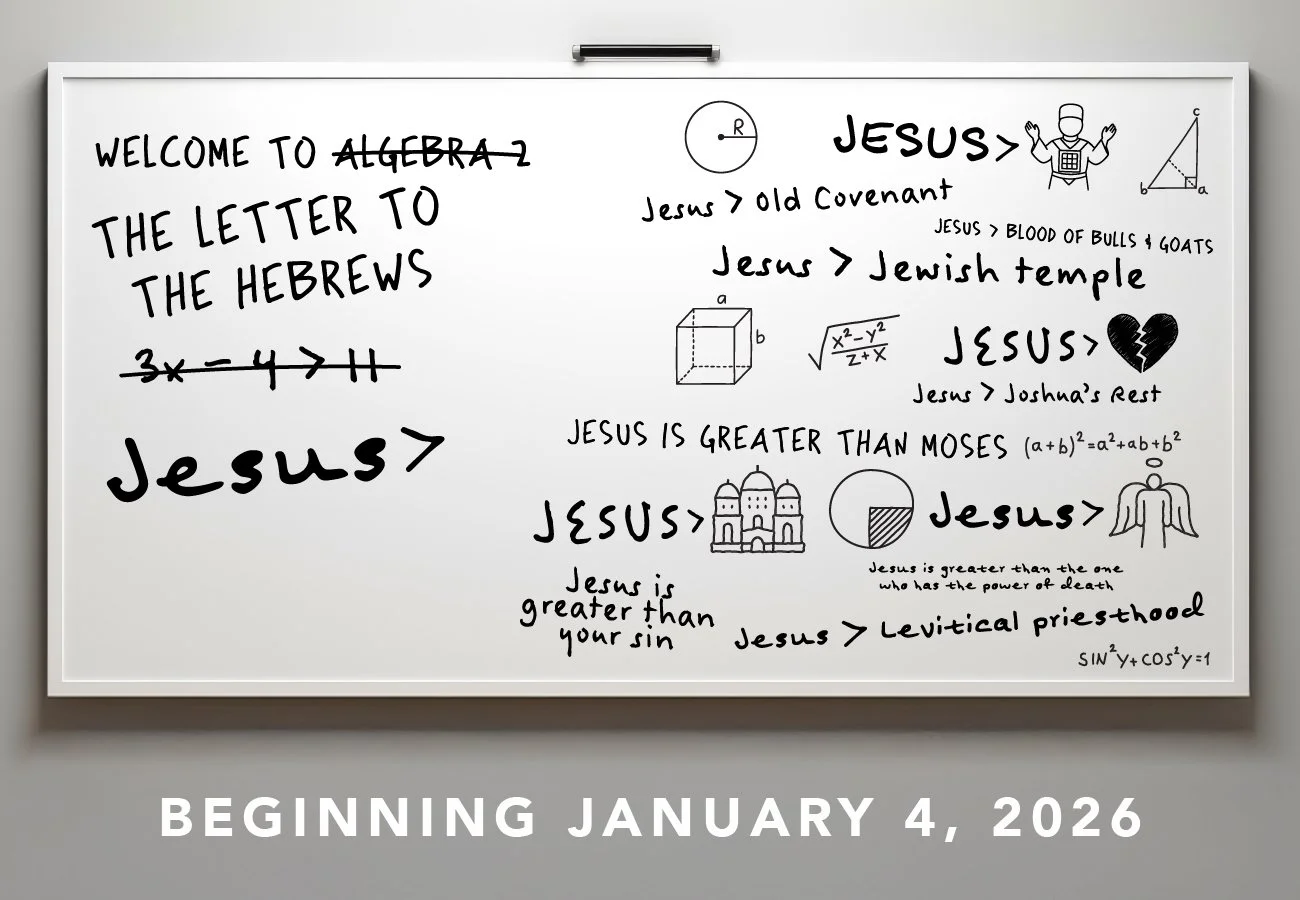 WELCOME TO ALGEBRA 2
THE LETTER TO
THE HEBREWS
3x - 4 > 11
Jesus >
R
JESUS >
c
b
a
Jesus > Old Covenant
JESUS > BLOOD OF BULLS & GOATS
Jesus > Jewish temple
a
b
√(x²-y²/z+x)
JESUS >
Jesus > Joshua's Rest
JESUS IS GREATER THAN MOSES
(a+b)²=a²+ab+b²
JESUS >
Jesus >
Jesus is greater than the one
who has the power of death
Jesus is
greater than
your sin
Jesus > Levitical priesthood
SIN²Y+COS²Y=1
BEGINNING JANUARY 4, 2026